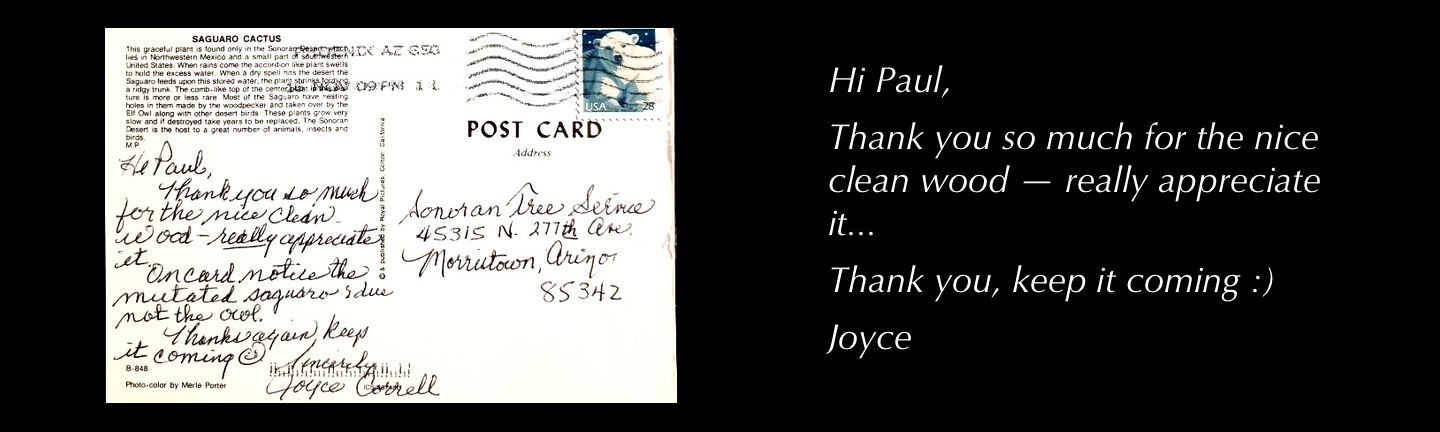 SAGUARO CACTUS
This graceful plant is found only in the Sonoran Desert which
lies in Northwestern Mexico and a small part of southwestern
United States. When rains come the accordion like plant swells
to hold the excess water. When a dry spell hits the desert the
Saguaro feeds upon this stored water, the plant shrinks forming
a ridgy trunk. The comb-like top of the center plant in
ture is more or less rare. Most of the Saguaro have nesting
holes in them made by the woodpecker and taken over by the
Elf Owl along with other desert birds. These plants grow very
slow and if destroyed take years to be replaced. The Sonoran
Desert is the host to a great number of animals, insects and
birds.
M.P.
Hi Paul,
Thank you so much
for the nice clean
wood - really appreciate
it.
On card notice the
mutated saguaro & due
not the owl.
Thanks again, keep
it coming ☺
Sincerely
Joyce Correll
B-848
Photo-color by Merle Porter
© & published by Royal Pictures, Colton, California
PHOENIX AZ 850
NOV 09 PM 11
USA 28
POST CARD
Address
Sonoran Tree Service
45315 N. 277th Ave.
Morristown, Arizo
85342
Hi Paul,
Thank you so much for the nice
clean wood — really appreciate
it...
Thank you, keep it coming :)
Joyce